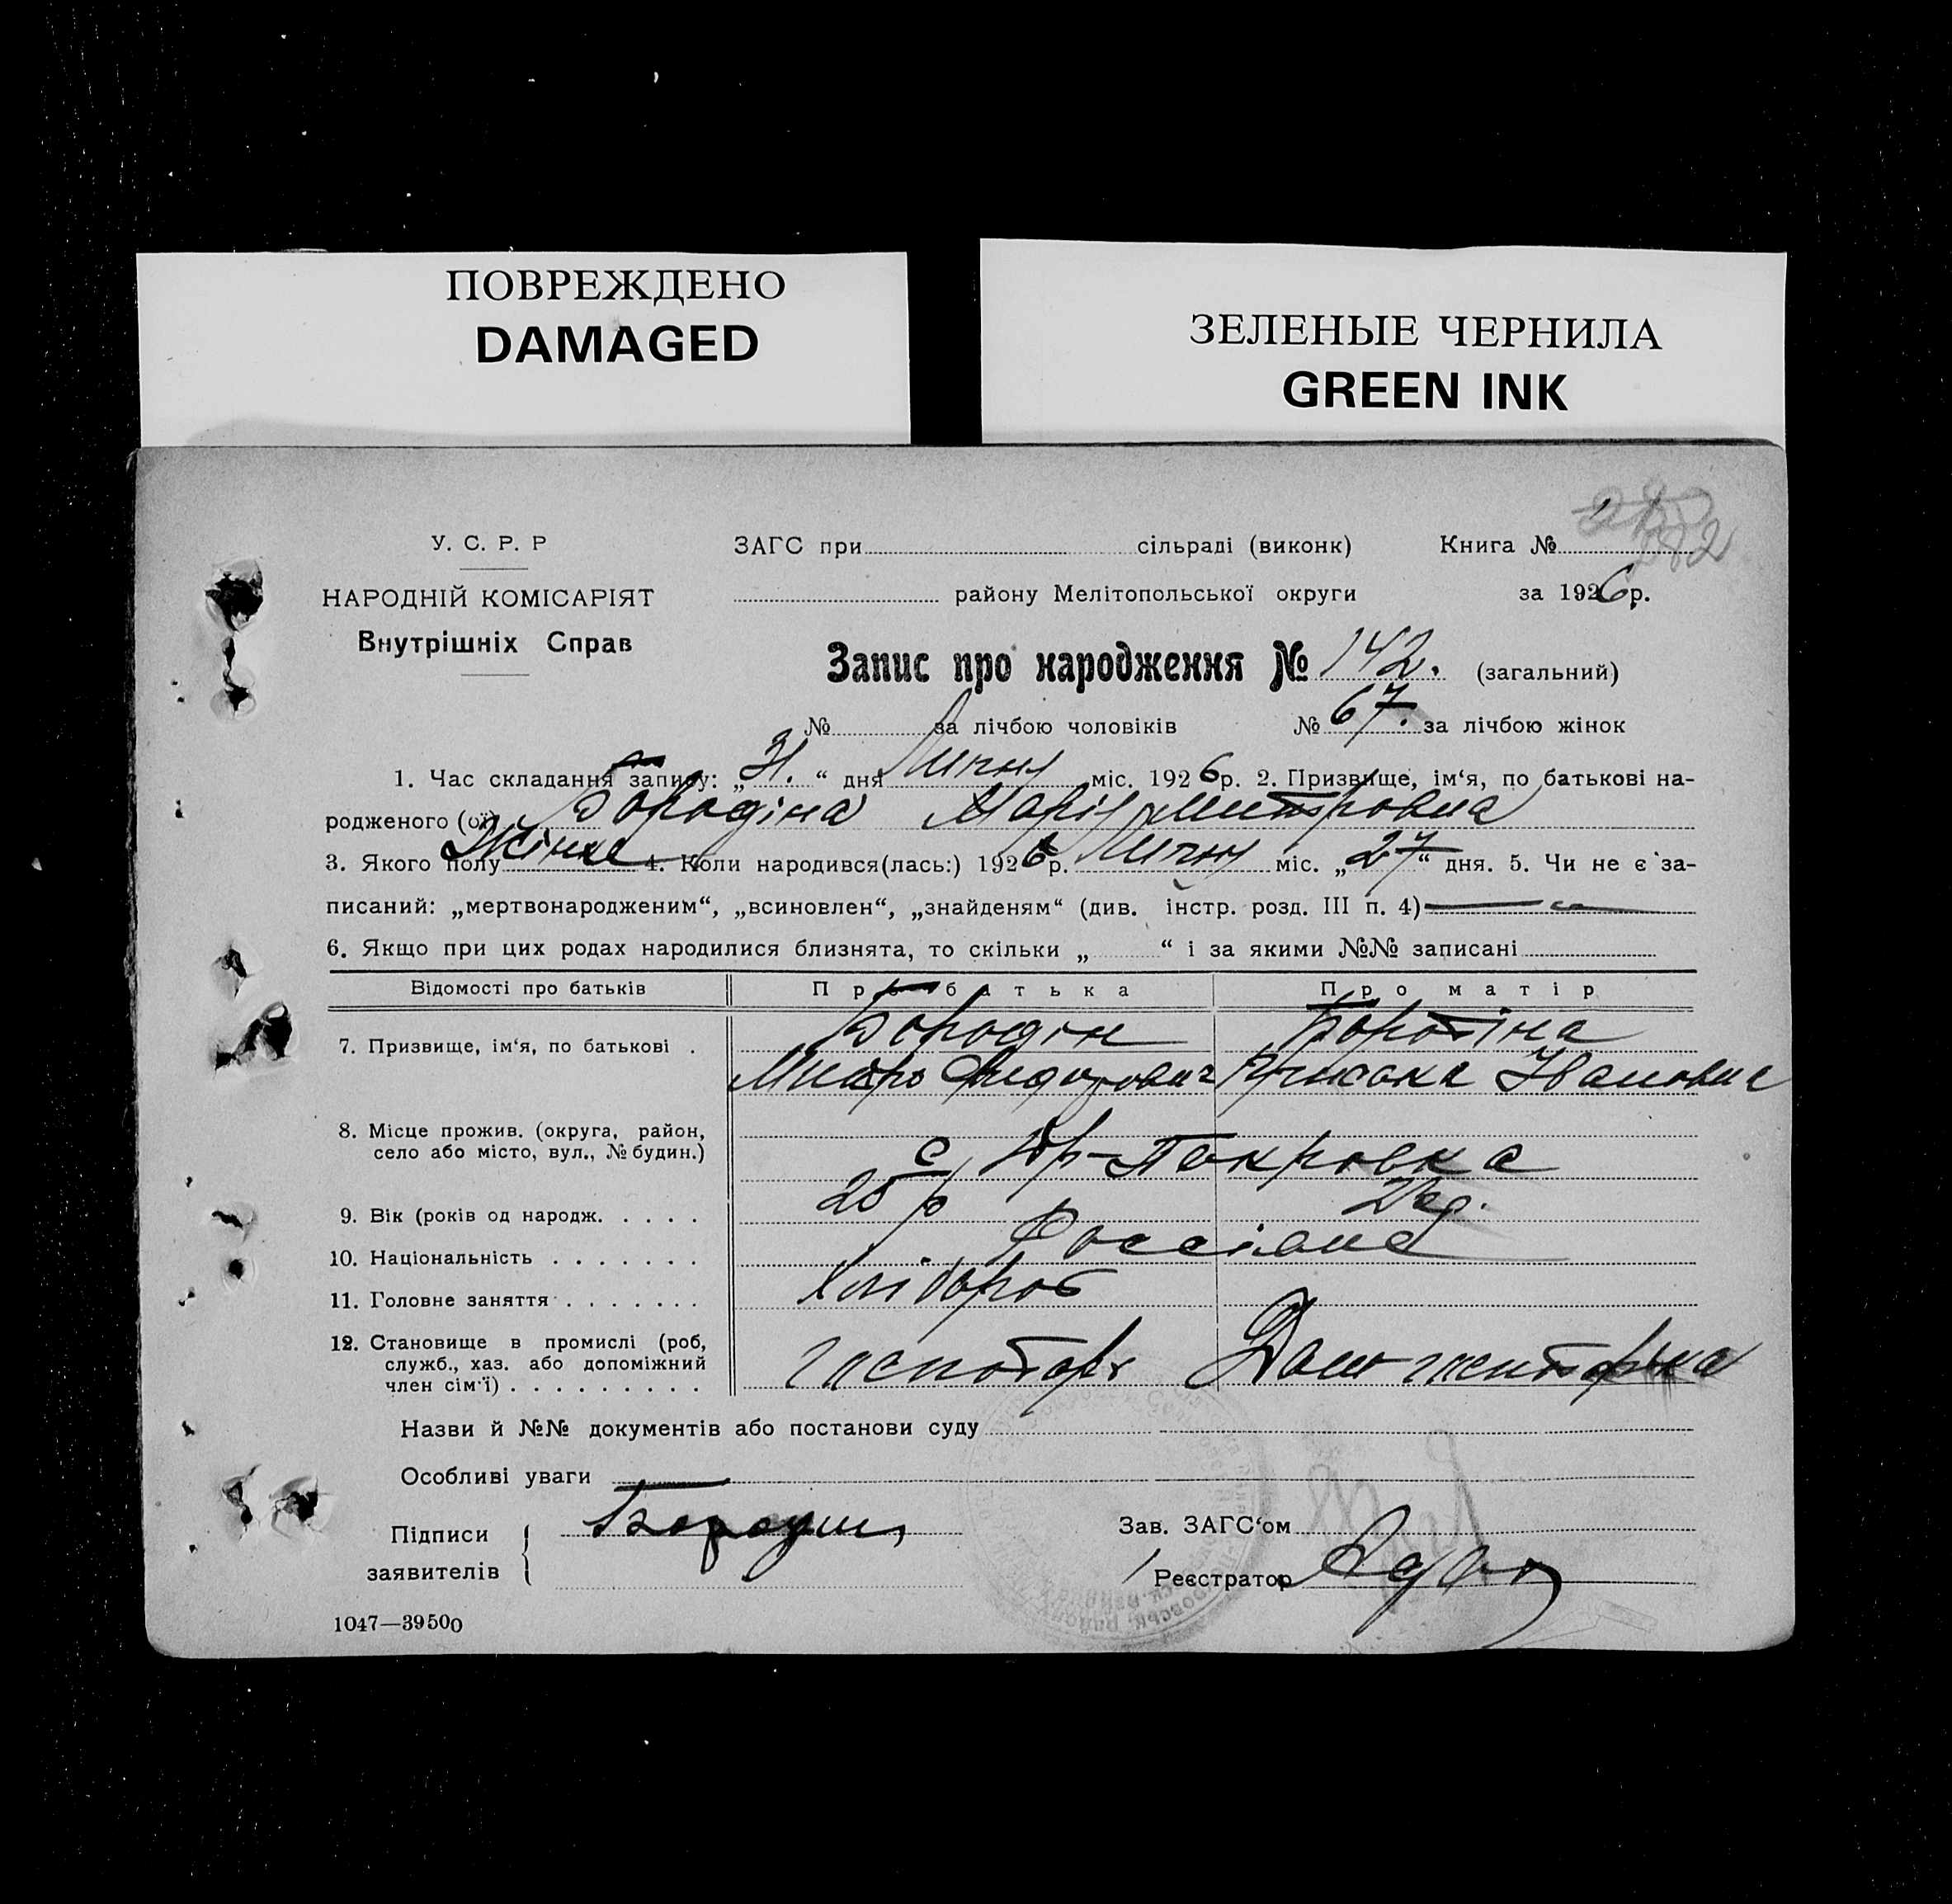 ПОВРЕЖДЕНО
DAMAGED
ЗЕЛЕНЫЕ ЧЕРНИЛА
GREEN INK
282
У. С. Р. Р
НАРОДНІЙ КОМІСАРІЯТ
Внутрішніх Справ
ЗАГС при сільраді (виконк) Книга №
району Мелітопольської округи за 1926 р.
Запис про народження № 142. (загальний)
№ за лічбою чоловіків № 67. за лічбою жінок
1. Час складання запису: „31.“ дня Липня міс. 1926 р. 2. Призвище, ім‘я, по батькові на-
родженого (ої) Бородіна Марія Митровна
3. Якого полу Жінка 4. Коли народився(лась:) 1926 р. Липня міс. „27“ дня. 5. Чи не є за-
писаний: „мертвонародженим“, „всиновлен“, „знайденям“ (див. інстр. розд. III п. 4)
6. Якщо при цих родах народилися близнята, то скільки „ “ і за якими №№ записані
Відомості про батьків Про батька Про матір
7. Призвище, ім‘я, по батькові . Бородін Бородіна
Митро Федорович Ивановна
8. Місце прожив. (округа, район,
село або місто, вул., № будин.) с Нр-Покровка
9. Вік (років од народж. . . . . 25 р
10. Національність . . . . . . . Россіяне
11. Головне заняття . . . . . . . Хлібороб
12. Становище в промислі (роб,
служб., хаз. або допоміжний
член сім‘ї) . . . . . . . . . господарь Дом господарька
Назви й №№ документів або постанови суду
Особливі уваги
Підписи
заявителів Бородин
Зав. ЗАГС‘ом
Реєстратор
1047—39500